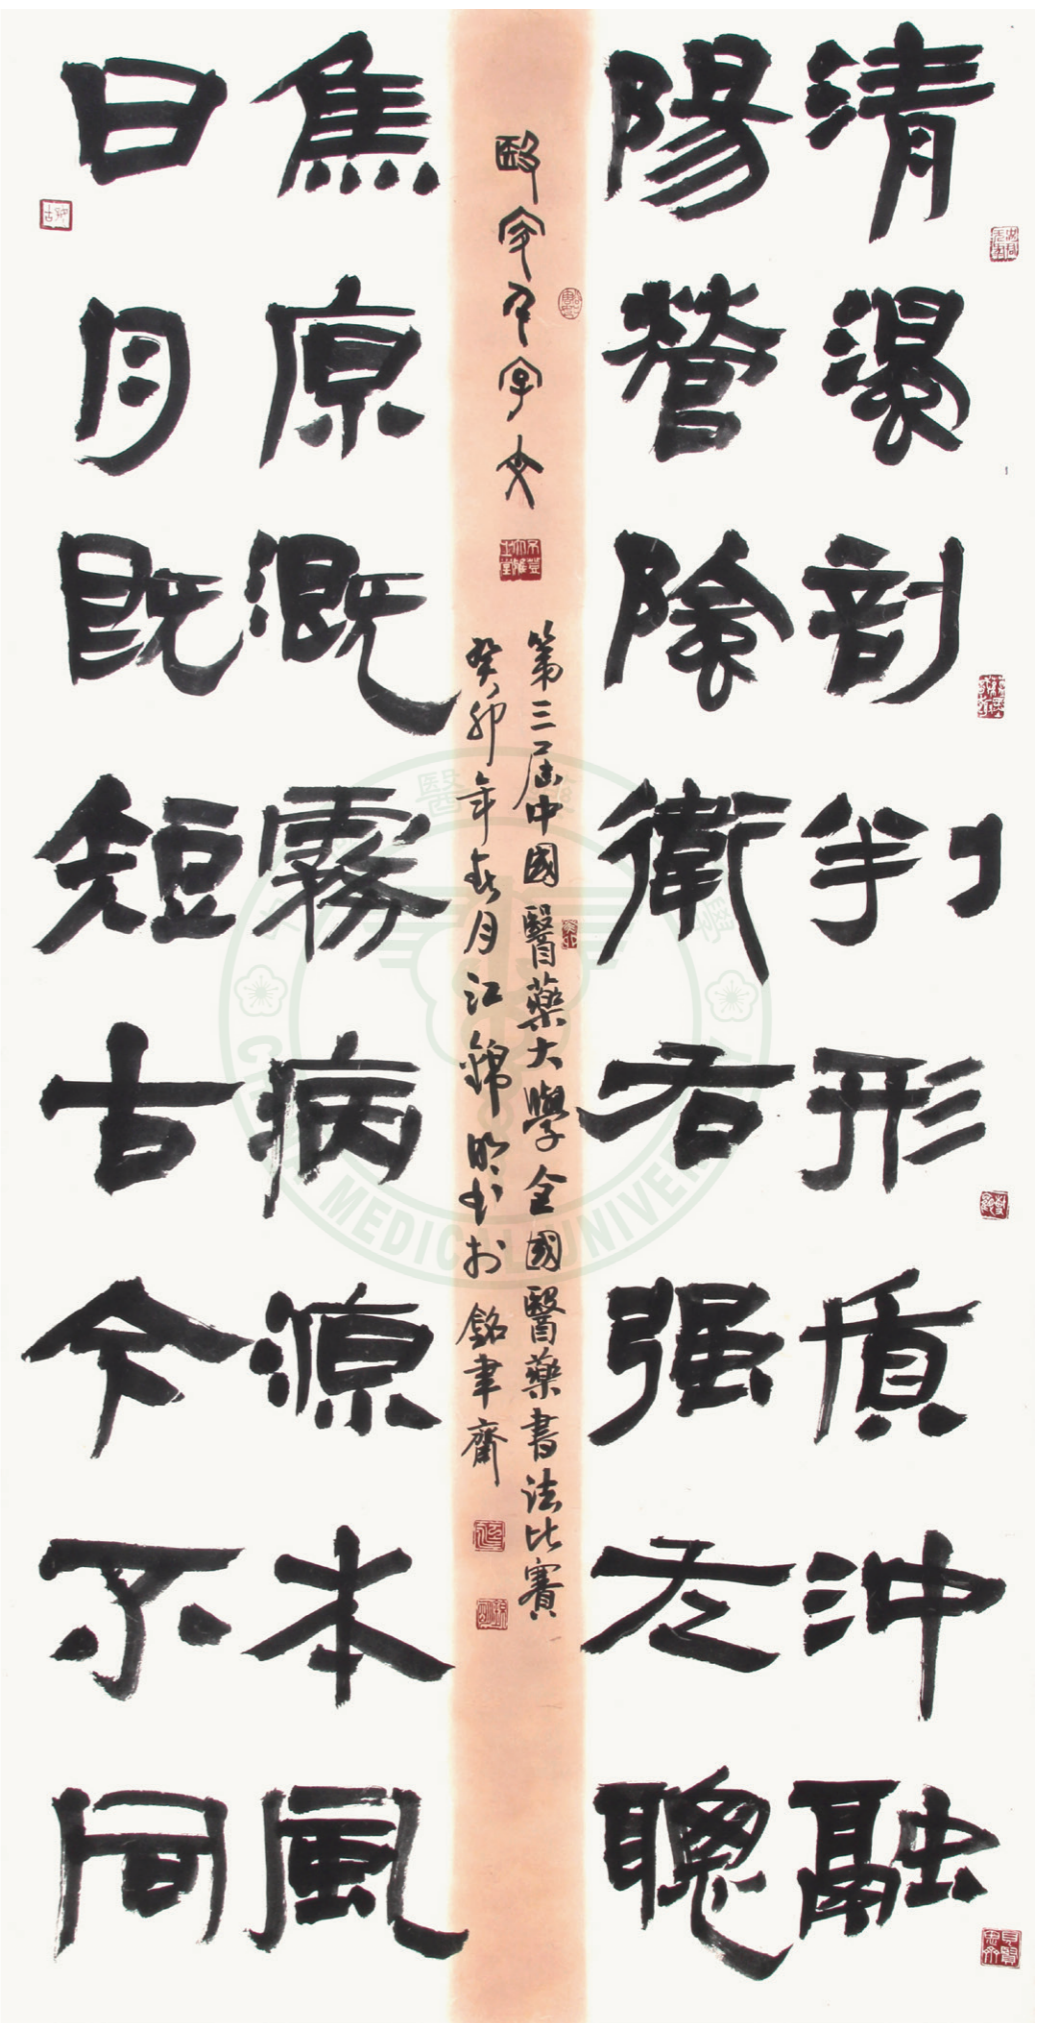 清濁剖判形質沖融
陽營陰衛右强左聰
殹家千字文
第三屆中國醫藥大學全國醫藥書法比賽
癸卯年春月江錦明書於銘聿齋
焦原溉霧病源本風
日月既短古今不同
MEDICAL UNIVER